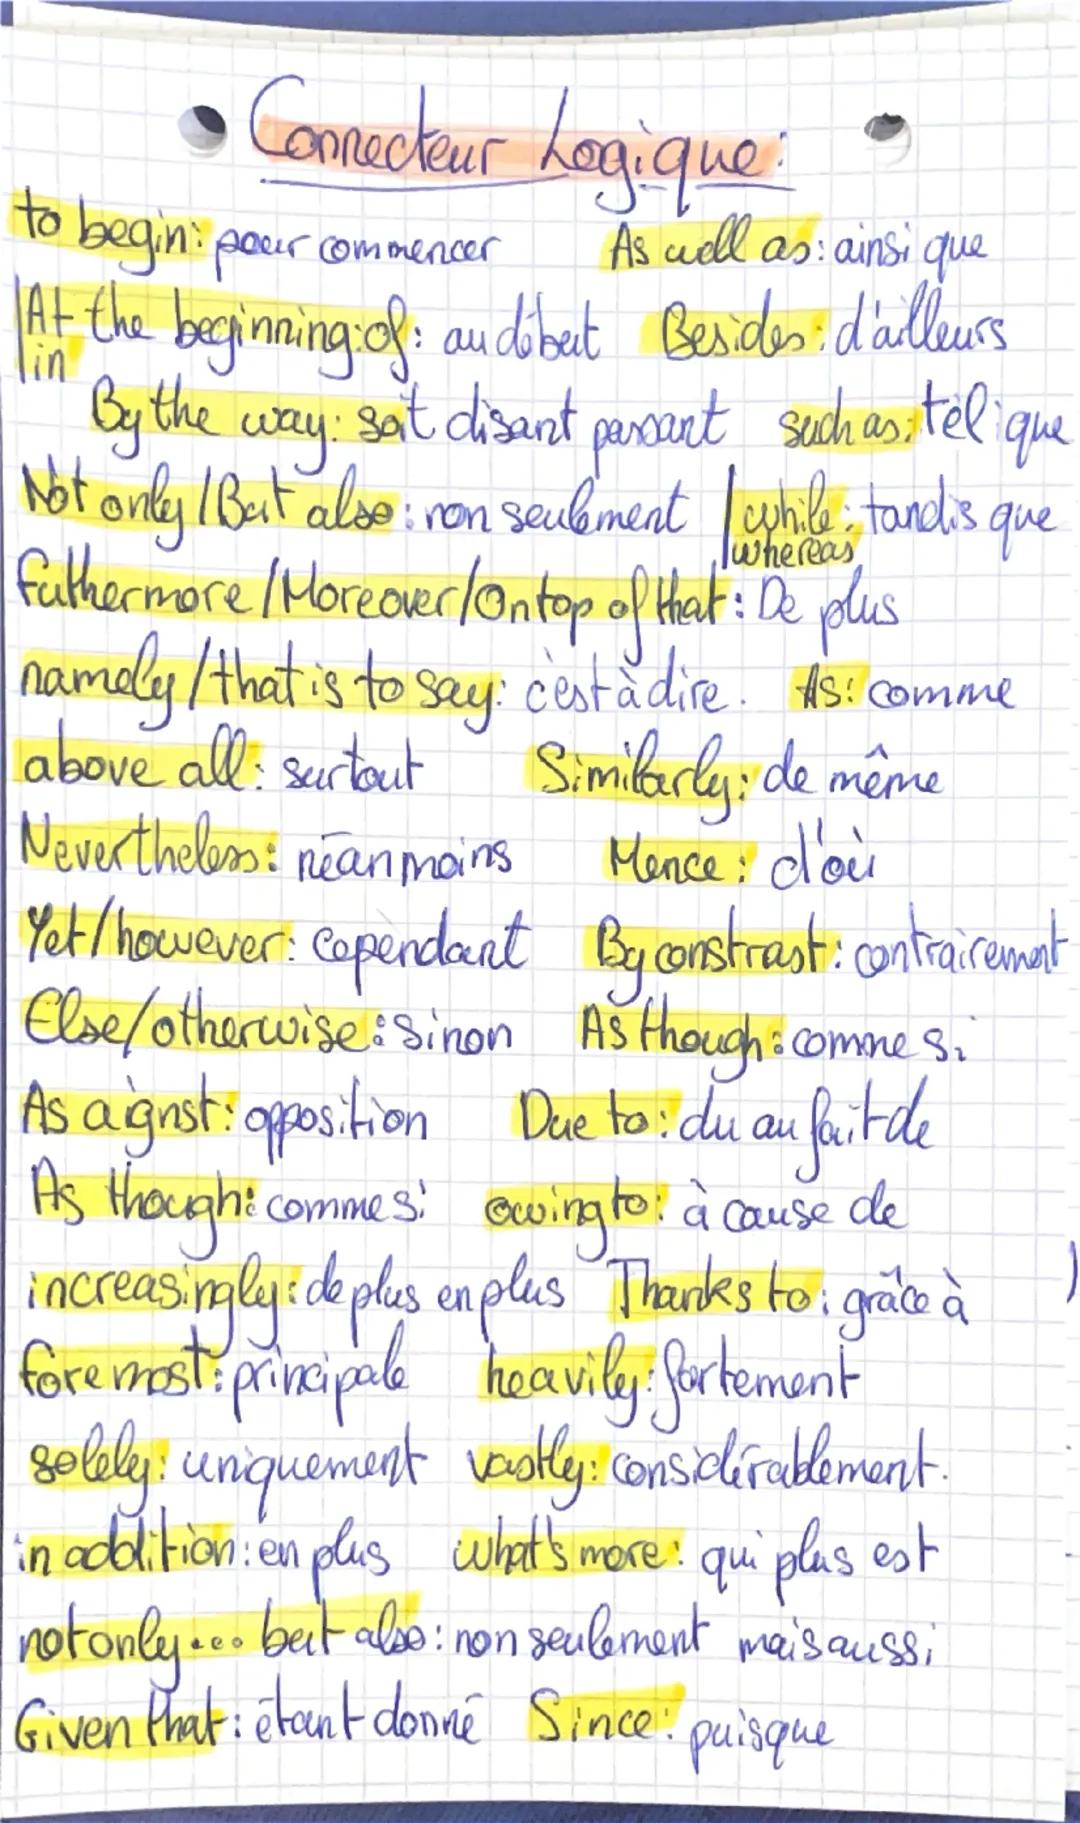 Connecteur Logique:
to begin: pour commencer As well as: ainsi que
At the beginning of: au début Besides: d'ailleurs
in
By the way: soit disant passant such as: tel que
Not only / But also: non seulement while: tandis que
whereas
futhermore / Moreover / On top of that: De plus
namely / that is to say: c'est à dire. As: comme
above all: surtout Similarly: de même
Nevertheless: néanmoins Hence: d'où
Yet / however: cependant By constrast: contrairement
Else / otherwise: sinon As though: comme si
As aignst: opposition Due to: du au fait de
As though: comme si owing to: à cause de
increasingly: de plus en plus Thanks to: grâce à
foremost: principale heavily: fortement
solely: uniquement vastly: considérablement.
in addition: en plus what's more: qui plus est
not only... but also: non seulement mais aussi
Given that: étant donné Since: puisque